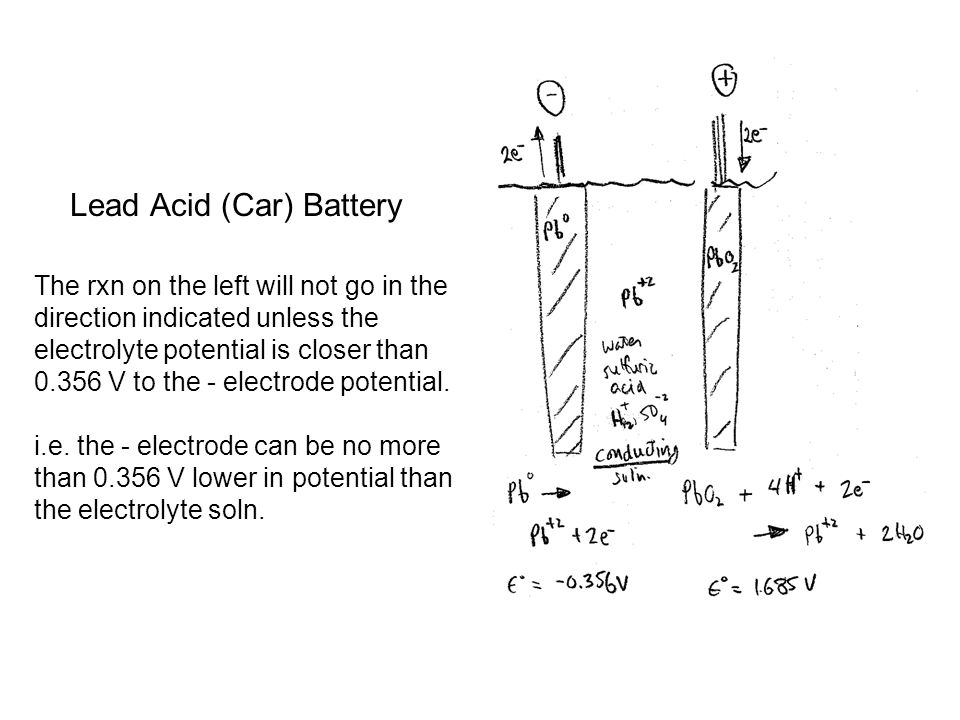 Lead Acid (Car) Battery
The rxn on the left will not go in the
direction indicated unless the
electrolyte potential is closer than
0.356 V to the - electrode potential.
i.e. the - electrode can be no more
than 0.356 V lower in potential than
the electrolyte soln.
-
+
2e⁻
2e⁻
Pb⁰
PbO₂
Pb⁺²
water
sulfuric
acid
H⁺, SO₄⁻²
conducting
soln.
Pb⁰ →
Pb⁺² + 2e⁻
ε° = -0.356V
PbO₂ + 4H⁺ + 2e⁻
→ Pb⁺² + 2H₂O
ε° = 1.685 V